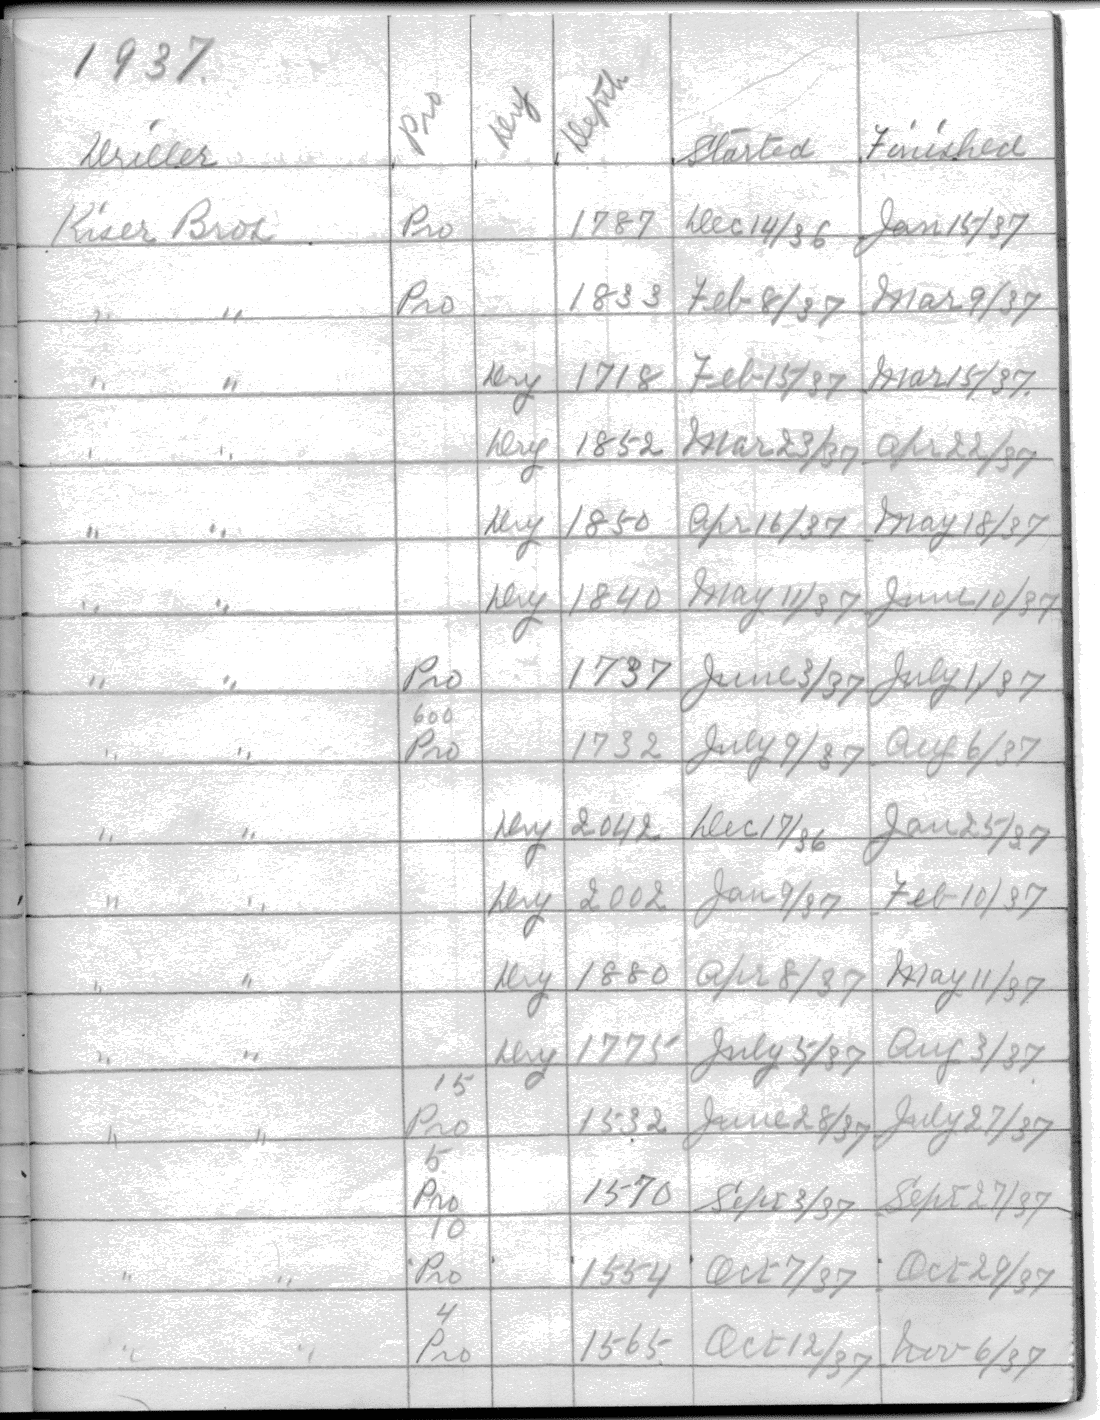 1937.
Driller Pro Dry Depth Started Finished
Kiser Bros Pro 1787 Dec 14/36 Jan 15/37
" " Pro 1833 Feb 8/37 Mar 9/37
" " Dry 1718 Feb 15/37 Mar 15/37.
" " Dry 1852 Mar 23/37 Apr 22/37
" " Dry 1850 Apr 16/37 May 18/37
" " Dry 1840 May 11/37 June 10/37
" " Pro 1737 June 3/37 July 1/37
600
" " Pro 1732 July 9/37 Aug 6/37
" " Dry 2042 Dec 17/36 Jan 25/37
" " Dry 2002 Jan 9/37 Feb 10/37
" " Dry 1880 Apr 8/37 May 11/37
" " Dry 1775 July 5/37 Aug 3/37
15
" " Pro 1532 June 28/37 July 27/37
5
Pro 1570 Sept 3/37 Sept 27/37
10
" " Pro 1554 Oct 7/37 Oct 29/37
4
" " Pro 1565 Oct 12/37 Nov 6/37